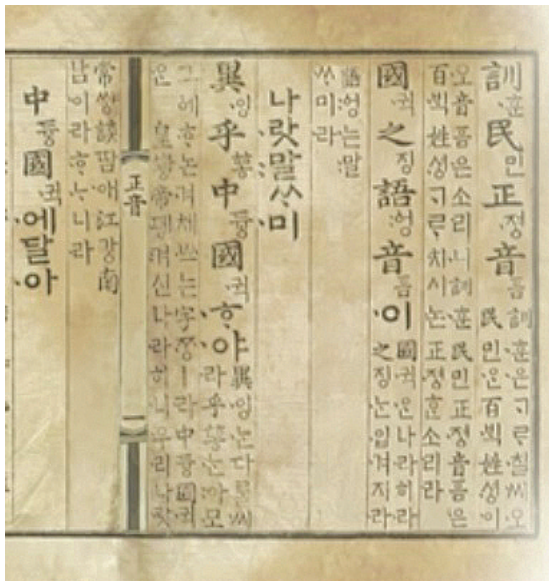 訓훈民민正져ᇰ音ᅙᅳᆷ
訓훈은ᄀᆞᄅᆞ칠씨오
民민ᄋᆞᆫ百ᄇᆡᆨ姓셔ᇰ이
오音ᅙᅳᆷ은소리니訓훈民민正져ᇰ音ᅙᅳᆷ은
百ᄇᆡᆨ姓셔ᇰᄀᆞᄅᆞ치시논正져ᇰᄒᆞᆫ소리라
國귁之징語ᅌᅥᆼ音ᅙᅳᆷ이
國귁ᄋᆞᆫ나라히라
之징ᄂᆞᆫ입겨지라
語ᅌᅥᆼ는말
ᄊᆞ미라
나랏말ᄊᆞ미
異잉乎ᅘᅩᆼ中듀ᇰ國귁ᄒᆞ야
異잉ᄂᆞᆫ다ᄅᆞᆯ씨
라乎ᅘᅩᆼᄂᆞᆫ아모
그ᅌᅦᄒᆞ논겨체ᄡᅳ는字ᄍᆞᆼㅣ라中듀ᇰ國귁
ᄋᆞᆫ皇ᅘᅪᇰ帝뎽겨신나라히니우리나랏
正音
一
常쌰ᇰ談땀애江가ᇰ南
남이라ᄒᆞᄂᆞ니라
中듀ᇰ國귁에달아